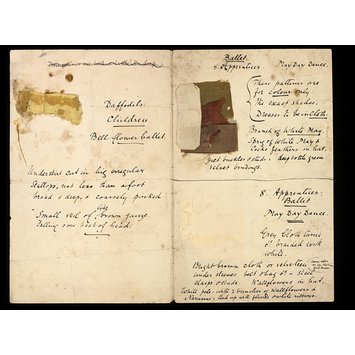 Daffodils.
Children
Bell flower Ballet.
Underskirt cut in big irregular
Scallops, not less than a foot
broad & deep, & coarsely pinked
like
Small veil of brown gauze.
Falling over back of head.
Ballet
8 Apprentices May Day Dance.
These patterns are
for colour only.
the exact shades.
Dresses to be in cloth.
Branch of White May.
Spray of White May &
Cocks feathers in hat.
buckles & studs: deep moth green
velvet bindings.
8. Apprentices.
Ballet
May Day Dance
Grey Cloth
braided with
white.
Bright brown cloth or velveteen
under sleeves belt & bag & sleeve
straps & studs. Wallflowers in hat.
White pole with 2 branches of wallflowers &
Narcissus: tied up with